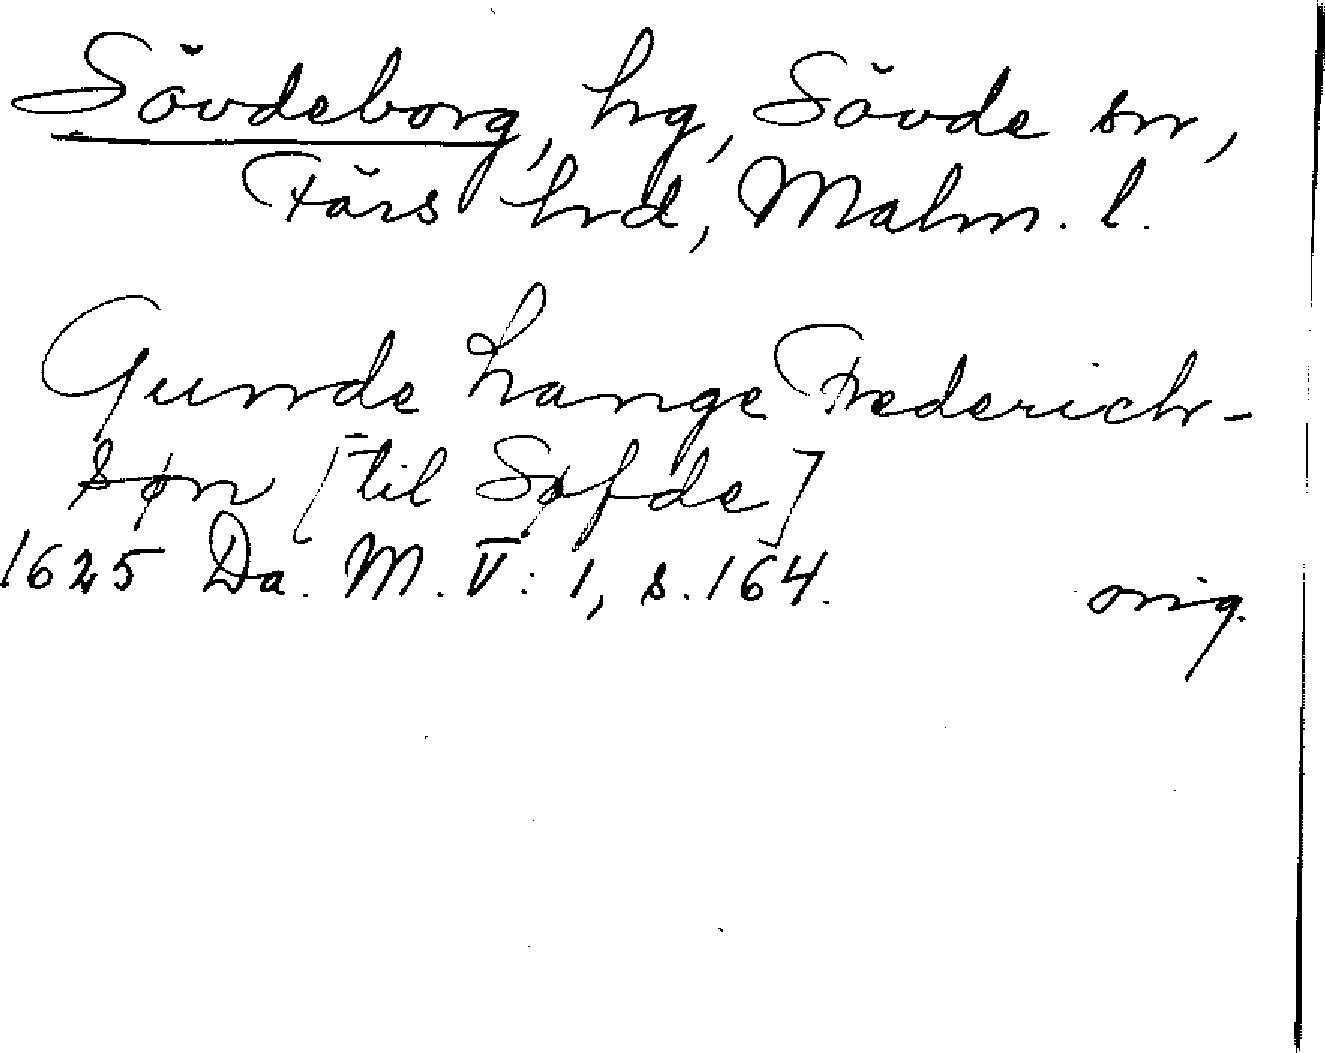 Sövdeborg, hg, Sövde sn,
Färs hrd, Malm. l.
Gunde Lange Frederich-
søn [til Søfde]
1625 Da. M. V: 1, s. 164. orig.